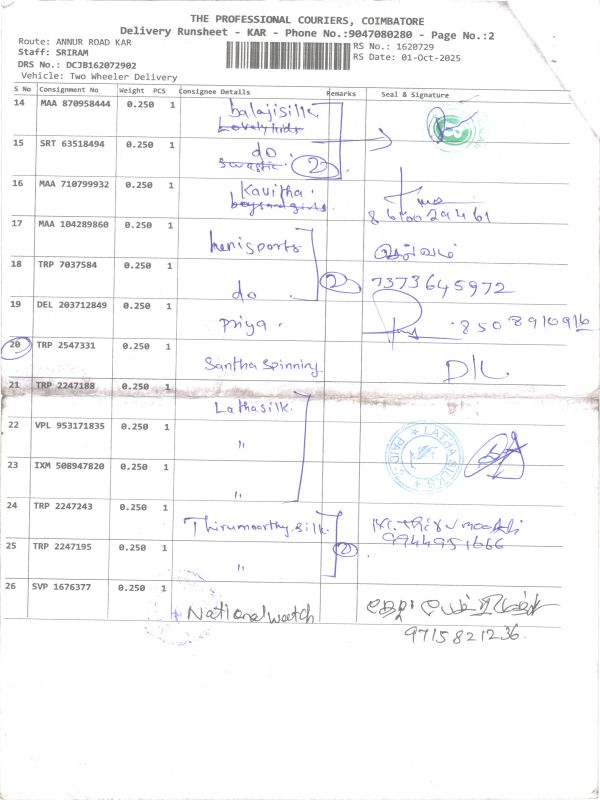 THE PROFESSIONAL COURIERS, COIMBATORE
Delivery Runsheet - KAR - Phone No.:9047080280 - Page No.:2
Route: ANNUR ROAD KAR
RS No.: 1620729
Staff: SRIRAM
RS Date: 01-Oct-2025
DRS No.: DCJB162072902
Vehicle: Two Wheeler Delivery
S No Consignment No Weight PCS Consignee Details Remarks Seal & Signature
14 MAA 870958444 0.250 1 balajisilk
Lovely kids
15 SRT 63518494 0.250 1 do
swastic. 2
16 MAA 710799932 0.250 1 Kavitha.
boys and girls
8600029461
17 MAA 104289860 0.250 1 henisports
18 TRP 7037584 0.250 1 do 2 7373645972
19 DEL 203712849 0.250 1 priya. 8508910916
20 TRP 2547331 0.250 1 Santha Spinning D/L
21 TRP 2247188 0.250 1 Lathasilk.
22 VPL 953171835 0.250 1 "
LATHA SILKS
23 IXM 508947820 0.250 1 "
24 TRP 2247243 0.250 1 Thirumoorthy silk
9944951666
25 TRP 2247195 0.250 1 " 2
26 SVP 1676377 0.250 1 National watch
9715821236.